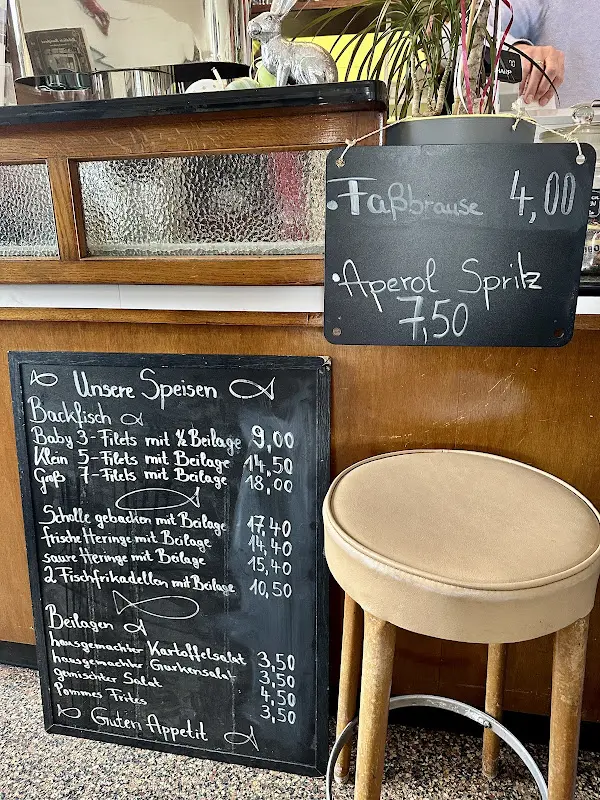 Faßbrause 4,00
Aperol Spritz
7,50
Unsere Speisen
Backfisch
Baby 3-Filets mit ½ Beilage 9,00
Klein 5-Filets mit Beilage 14,50
Groß 7-Filets mit Beilage 18,00
Scholle gebacken mit Beilage 17,40
frische Heringe mit Beilage 14,40
saure Heringe mit Beilage 15,40
2 Fischfrikadellen mit Beilage 10,50
Beilagen
hausgemachter Kartoffelsalat 3,50
hausgemachter Gurkensalat 3,50
gemischter Salat 4,50
Pommes Frites 3,50
Guten Appetit